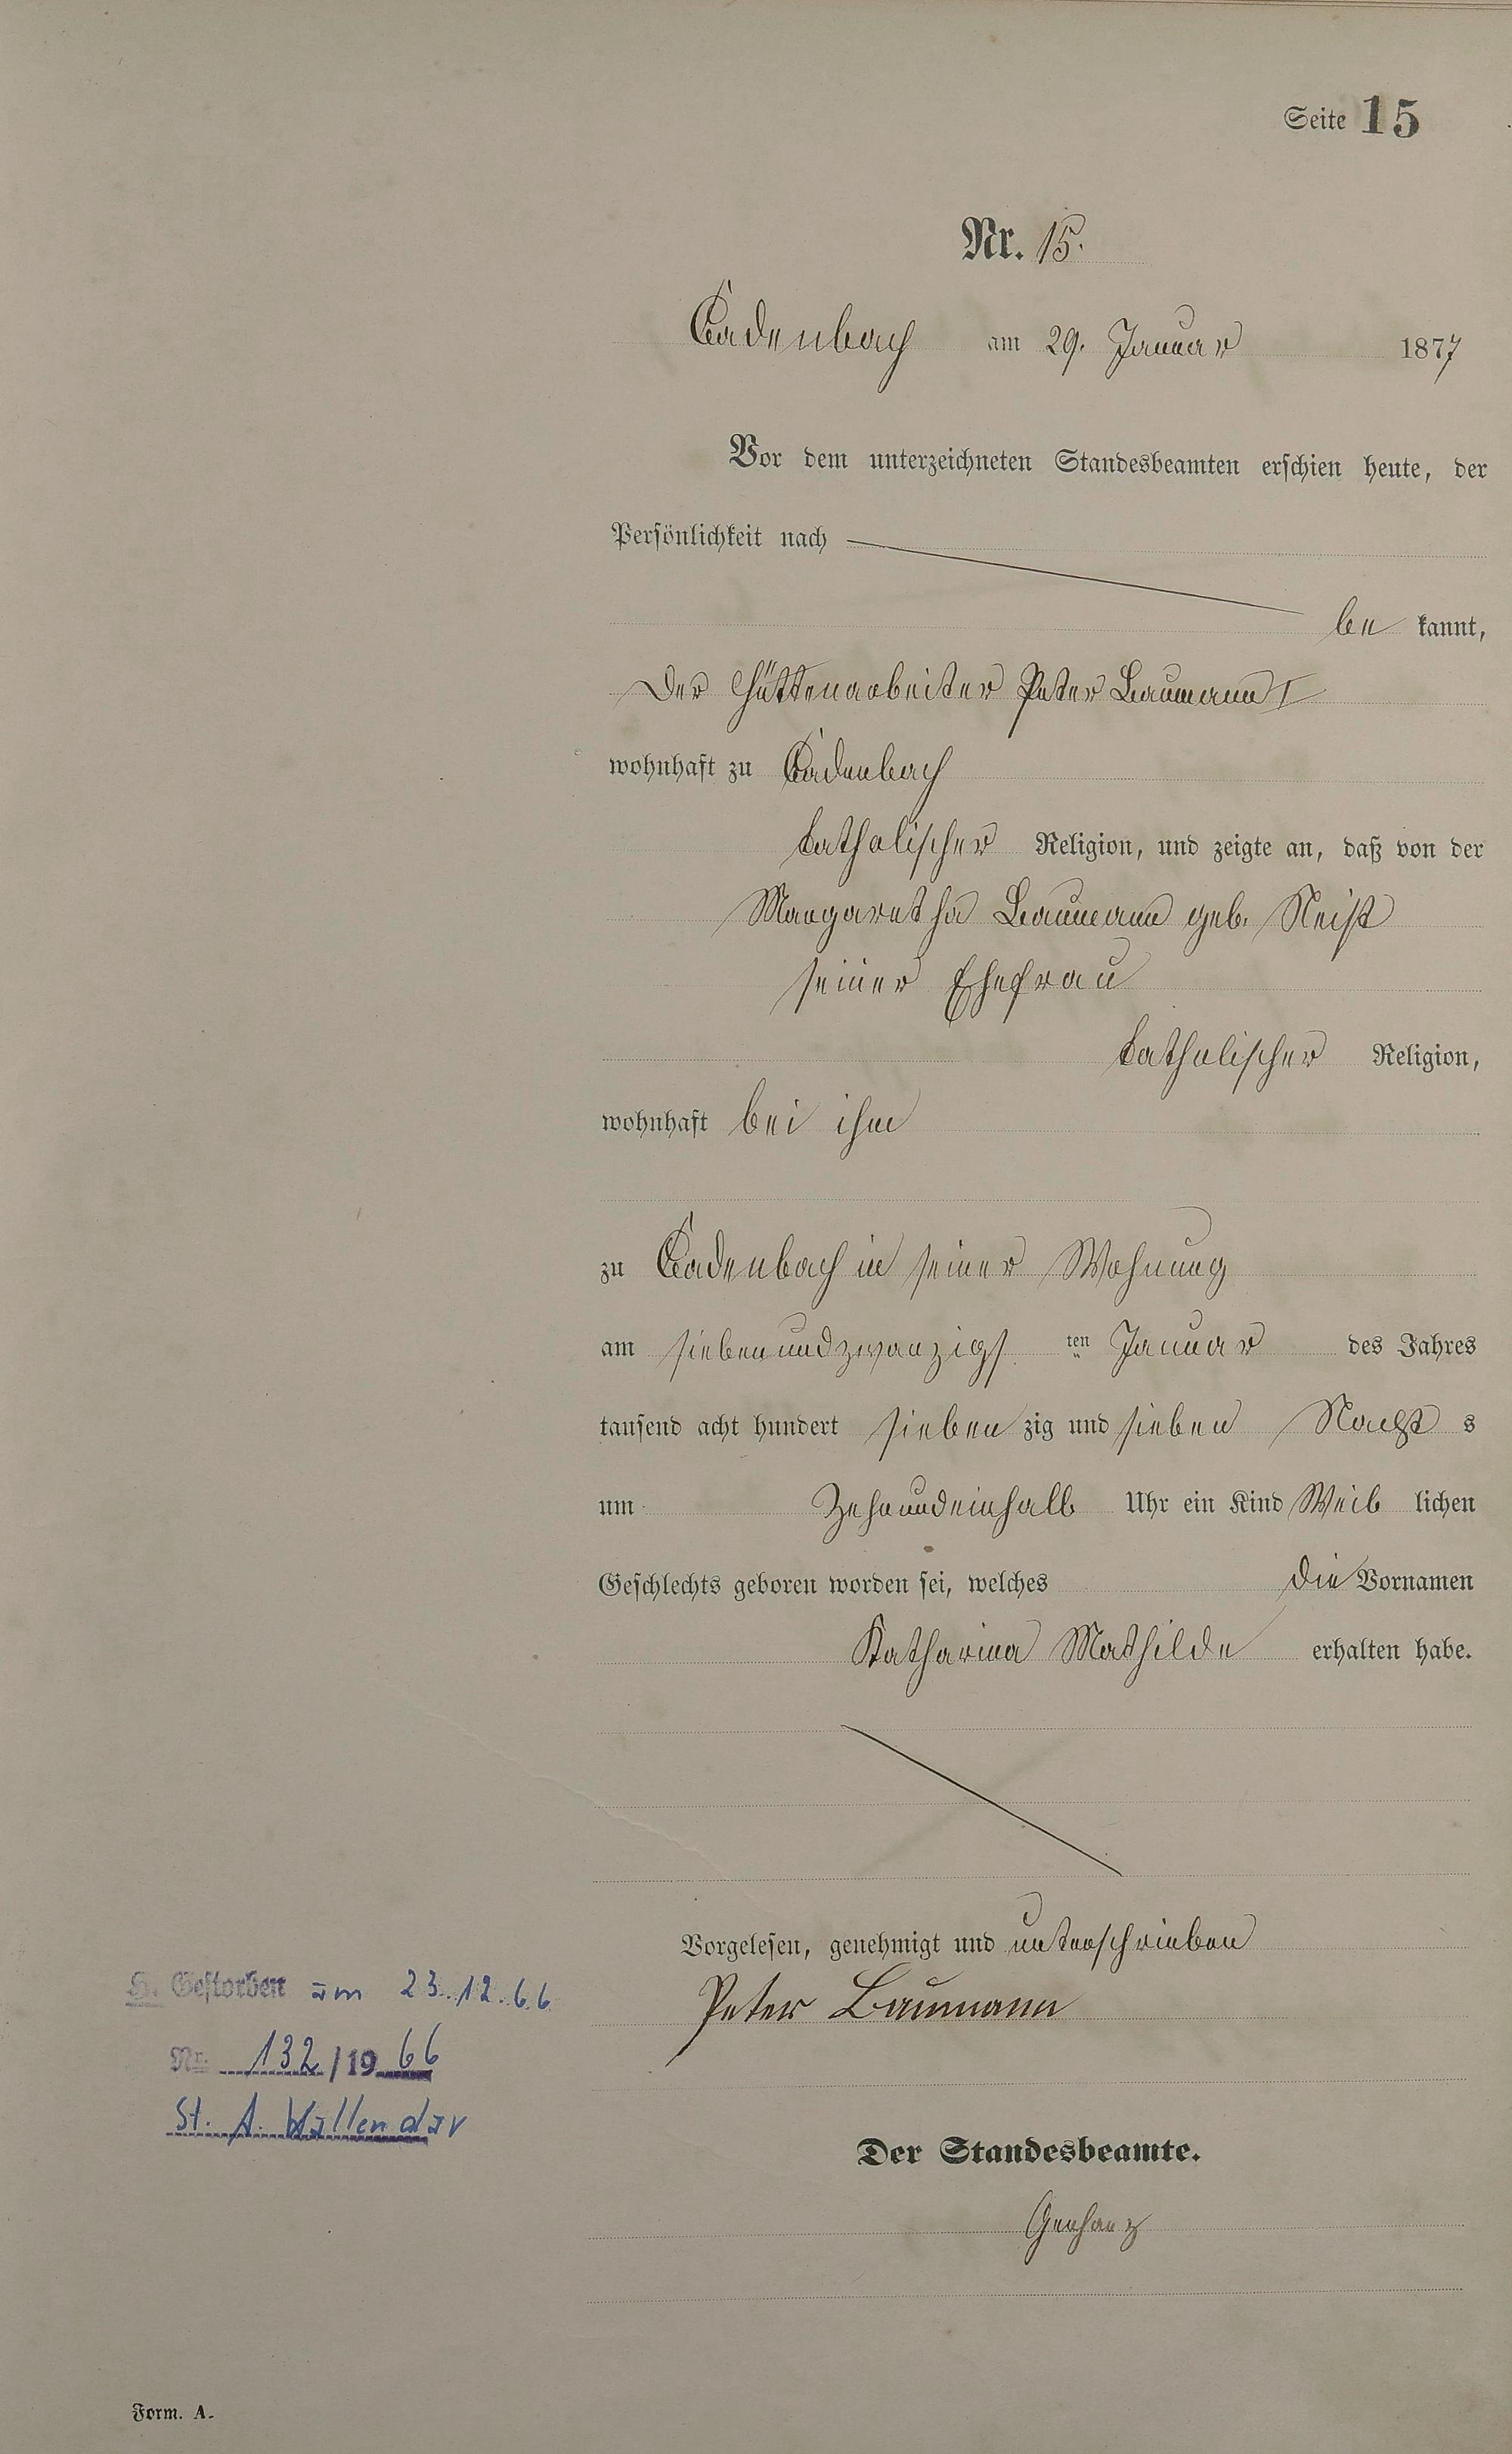 Seite 15
Nr. 15.
Cadenbach am 29. Januar 1877
Vor dem unterzeichneten Standesbeamten erschien heute, der
Persönlichkeit nach
be kannt,
der Hüttenarbeiter Peter Baumann I
wohnhaft zu Cadenbach
katholischer Religion, und zeigte an, daß von der
Margaretha Baumann geb.
seiner Ehefrau
katholischer Religion,
wohnhaft bei ihm
zu Cadenbach in seiner Wohnung
am siebenundzwanzigs ten Januar des Jahres
tausend acht hundert sieben zig und sieben Nacht s
um Zehnundeinhalb Uhr ein Kind Weib lichen
Geschlechts geboren worden sei, welches die Vornamen
Katharina Mathilde erhalten habe.
Vorgelesen, genehmigt und unterschrieben
Peter Baumann
Gestorben am 23.12.66
Nr. 132/1966
St. A. Vallendar
Der Standesbeamte.
Form. A.